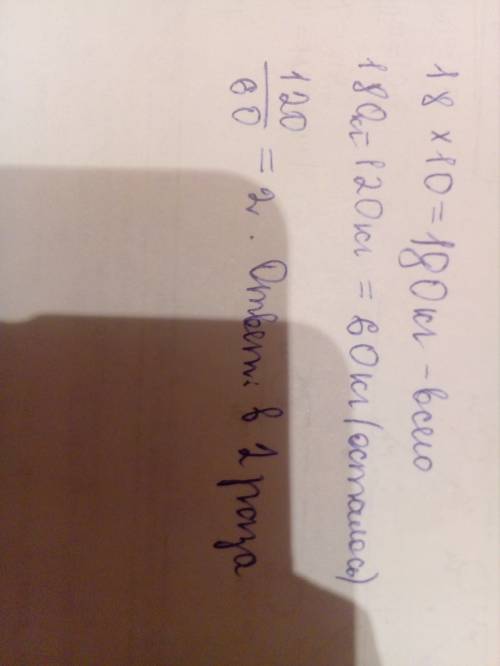 18 × 10 = 180кг - всего
180кг - 120кг = 60кг (осталось)
120/60 = 2. Ответ: в 2 раза